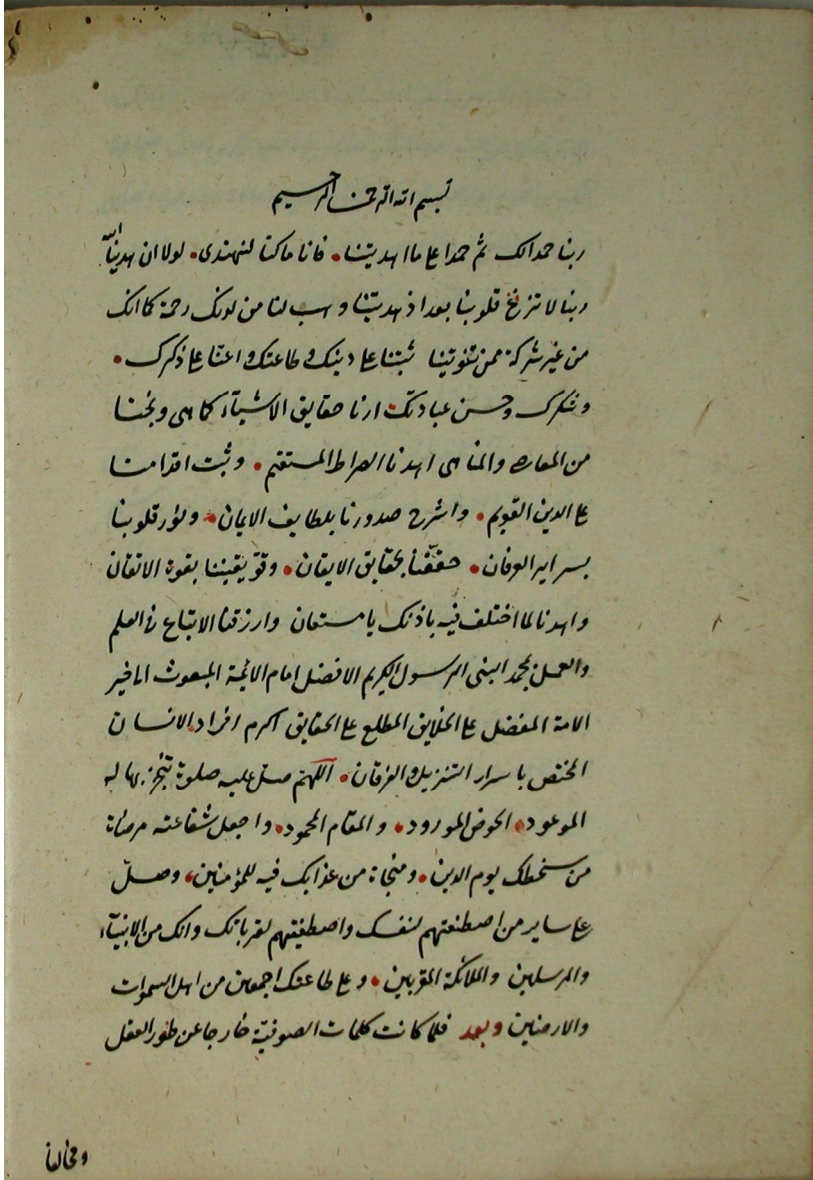 بسم الله الرحمن الرحيم
ربنا حمدا لك ثم حمدا على ما اهديتنا فانا ما كنا لنهتدى لولا ان هدينا الله
ربنا لا تزغ قلوبنا بعد اذ هديتنا وهب لنا من لدنك رحمة كما انك
من غير شركة ممن ثبتنا على دينك و طاعتك و اعنا على ذكرك
و شكرك وحسن عبادتك ارنا حقايق الاشياء كما هى ونجنا
من المعاصى والمناهى اهدنا الصراط المستقيم وثبت اقدامنا
على الدين القويم واشرح صدورنا بلطايف الايمان ونور قلوبنا
بسراير العرفان حققنا بحقايق الايقان وقو يقيننا بقوة الاتقان
واهدنا لما اختلف فيه باذنك يا مستعان وارزقنا الاتباع فى العلم
والعمل بمحمد النبى الرسول الكريم الافضل امام الائمة المبعوث الى خير
الامة المفضل على الخلايق المطلع على الحقايق اكرم افراد الانسان
المختص باسرار التنزيل والفرقان اللهم صل عليه صلوة تنجز بها له
الموعود الحوض المورود والمقام المحمود واجعل شفاعته مرضاة
من سخطك يوم الدين ومنجاة من عذابك فيه للمؤمنين وصل
على ساير من اصطنعتهم لنفسك واصطفيتهم لقرباتك وانك من الانبياء
والمرسلين والملائكة المقربين وعلى طاعتك اجمعين من اهل السموات
والارضين وبعد فلما كانت كلمات الصوفية خارجا عن طور العقل